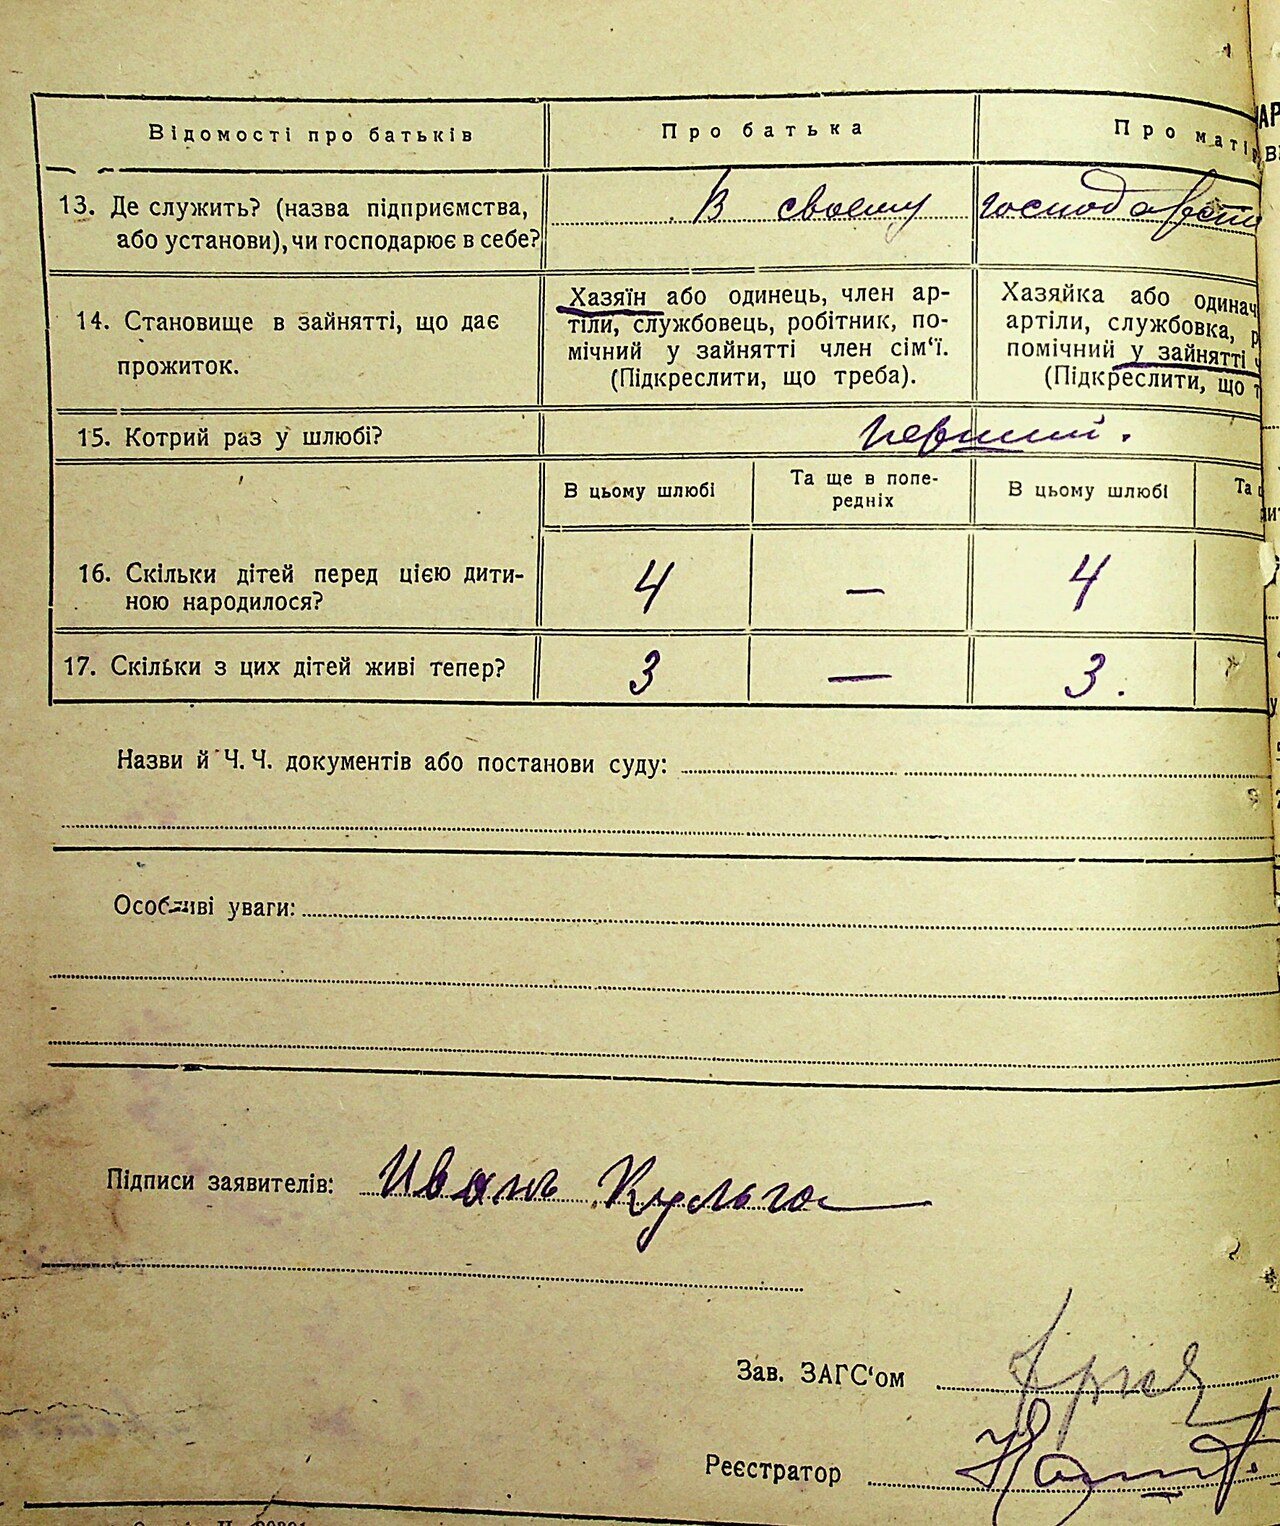 Відомості про батьків Про батька Про матір
13. Де служить? (назва підприємства, або установи), чи господарює в себе? В своему господарстві
14. Становище в зайнятті, що дає прожиток.
Хазяїн або одинець, член ар-
тіли, службовець, робітник, по-
мічний у зайнятті член сім‘ї.
(Підкреслити, що треба).
Хазяйка або одинач
артіли, службовка, р
помічний у зайнятті ч
(Підкреслити, що т
15. Котрий раз у шлюбі? первший.
В цьому шлюбі Та ще в попе-
редніх В цьому шлюбі Та
16. Скільки дітей перед цією дити-
ною народилося? 4 — 4
17. Скільки з цих дітей живі тепер? 3 — 3.
Назви й Ч. Ч. документів або постанови суду:
Особливі уваги:
Підписи заявителів: Иванъ Кульга
Зав. ЗАГС‘ом
Реєстратор